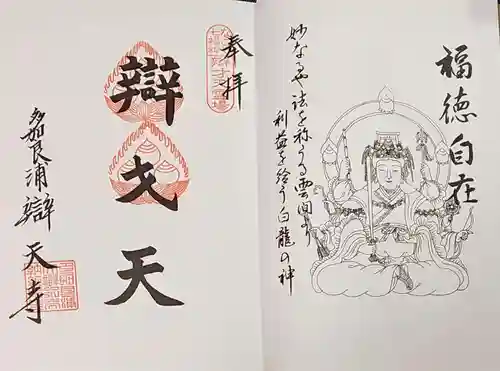 福徳自在
妙なるや法を称うる雲間より
利益を給う白龍の神
奉拝
辯才天
多賀良浦辯天寺